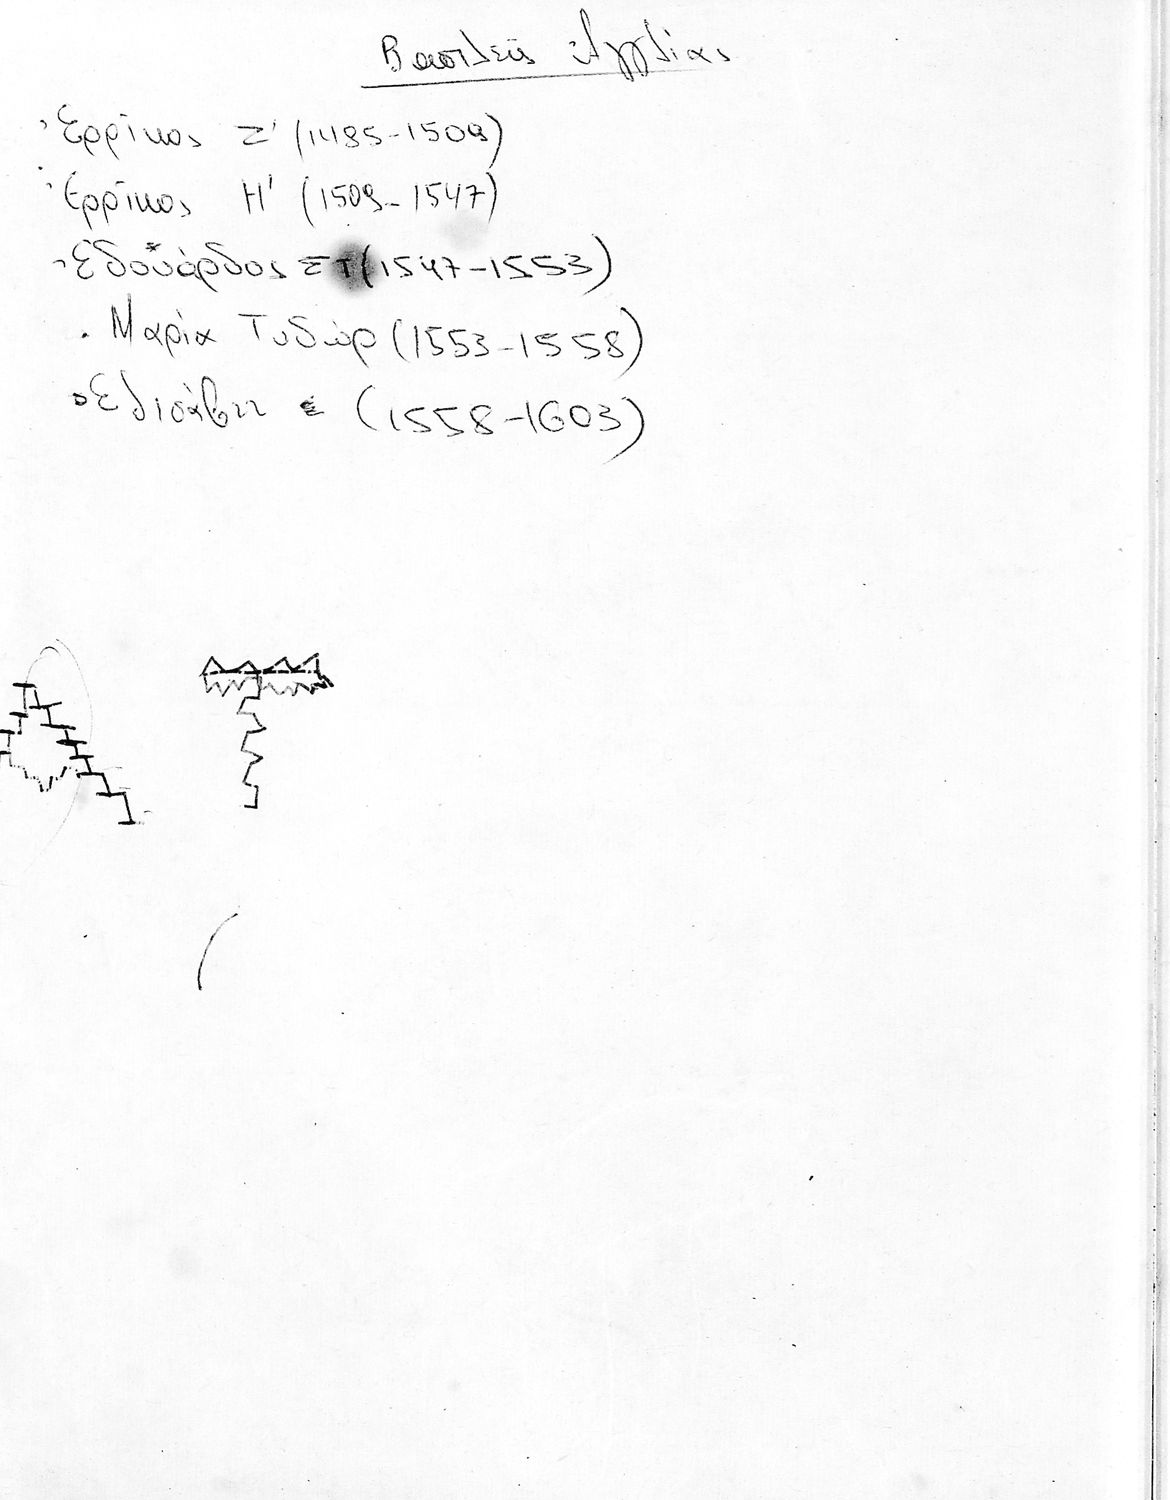 Βασιλείς Αγγλίας
Ερρίκος Ζ' (1485-1509)
Ερρίκος Η' (1509-1547)
Εδουάρδος ΣΤ (1547-1553)
Μαρία Τυδώρ (1553-1558)
Ελισάβετ (1558-1603)